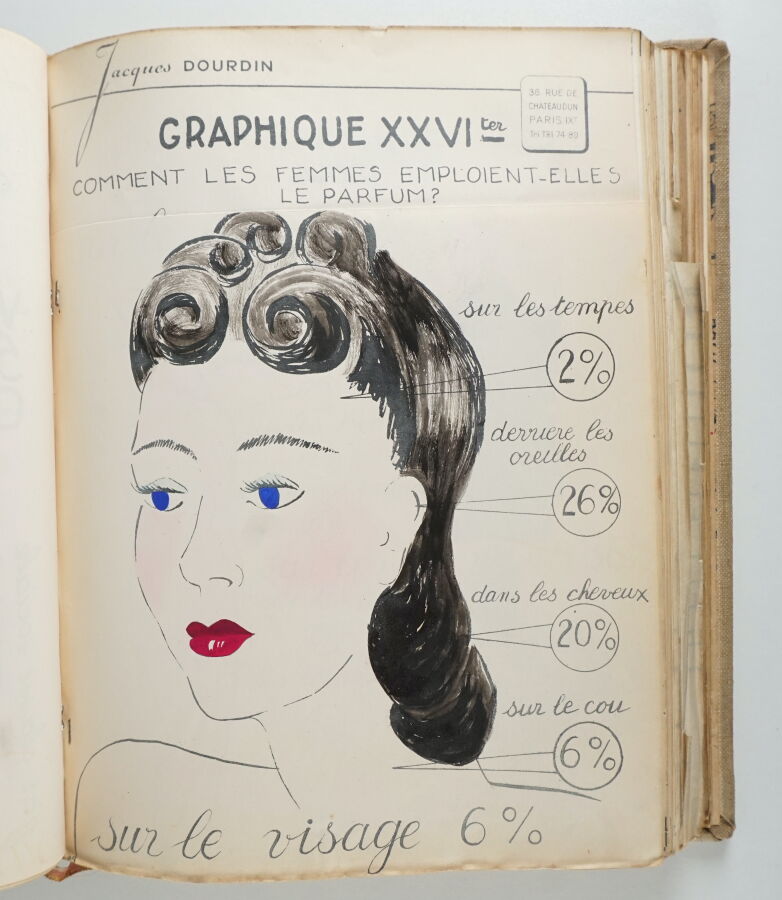 Jacques DOURDIN
36 RUE DE
CHATEAUDUN
PARIS IXᵉ
Tel TRI 74 89
GRAPHIQUE XXVI ter
COMMENT LES FEMMES EMPLOIENT-ELLES
LE PARFUM?
sur les tempes
2%
derriere les
oreilles
26%
dans les cheveux
20%
sur le cou
6%
sur le visage 6%